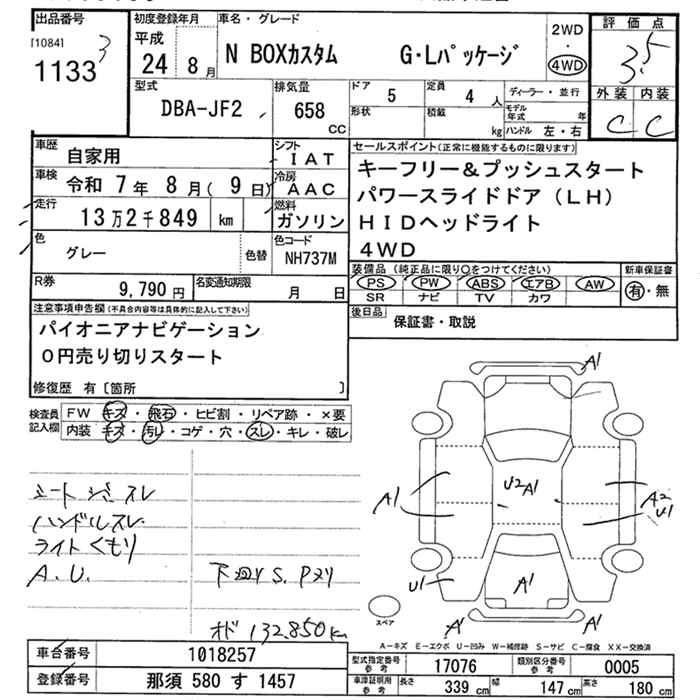 出品番号
[1084] 3
1133
初度登録年月
平成
24 8月
車名・グレード
N BOXカスタム G・Lパッケージ
2WD
・
4WD
評価点
3.5
外装 内装
C C
型式
DBA-JF2
排気量
658
CC
ドア 5
定員 4 人
形状
積載 kg
ディーラー・並行
モデル年式 年
ハンドル 左・右
車歴
自家用
シフト
IAT
車検
令和 7年 8月( 9日)
冷房
AAC
走行
13万2千849 km
燃料
ガソリン
色
グレー
色替
色コード
NH737M
R券
9,790円
名変通知期限
月 日
セールスポイント(正常に機能するものに限ります)
キーフリー&プッシュスタート
パワースライドドア(LH)
HIDヘッドライト
4WD
装備品 (純正品に限り○をつけてください)
PS PW ABS エアB AW
SR ナビ TV カワ
新車保証書
有・無
後日品
保証書・取説
注意事項申告欄(不具合内容等は具体的に記入して下さい)
パイオニアナビゲーション
0円売り切りスタート
修復歴 有〔箇所 〕
検査員
記入欄
FW キズ・飛石・ヒビ割・リペア跡・×要
内装 キズ・汚レ・コゲ・穴・スレ・キレ・破レ
シートジミスレ
ハンドルスレ
ライトくもり
A.U.
下廻りS.Pヌリ
オド132,850km
A1
A1
U2 A1
A2
U1
U1
A1
A1
A1
スペア
A-キズ E-エクボ U-凹み W-補修跡 S-サビ C-腐食 XX-交換済
車台番号
1018257
登録番号
那須 580 す 1457
型式指定番号
参考
17076
類別区分番号
参考
0005
車庫証明用
参考
長さ 339 cm
幅 147 cm
高さ 180 cm